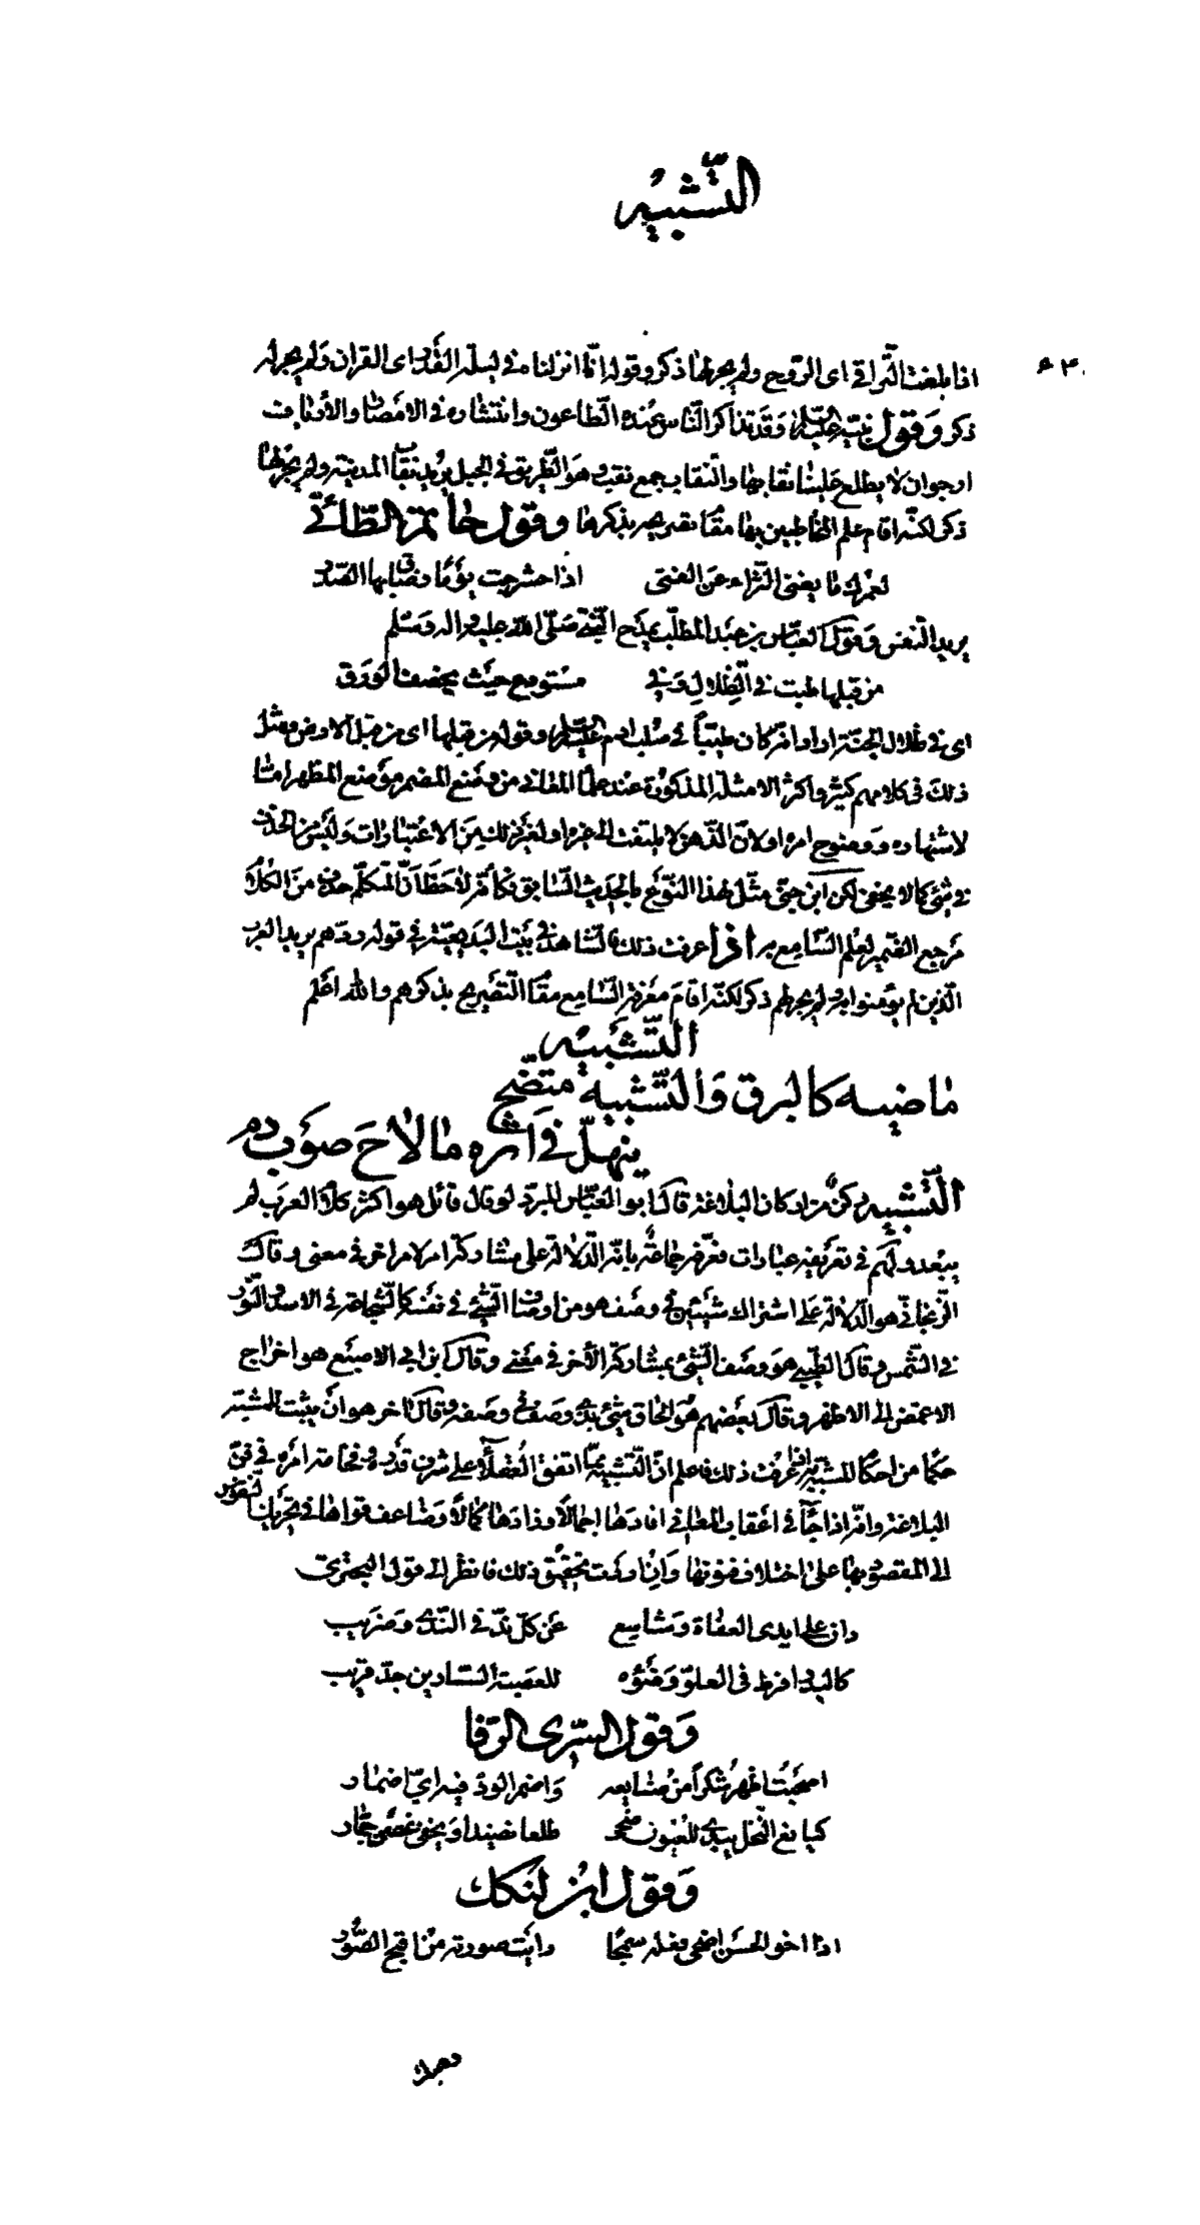 التّشبيه
٤٣٠
اذا بلغت التّراقى اى الرّوح ولم يجر لها ذكر وقوله انّا انزلناه فى ليلة القدر اى القران ولم يجر له
ذكر وَقول نبيّه عليه السّلم وقد تذاكر النّاس عنده الطّاعون وانتشاره فى الامصار والأرياف
ارجو ان لا يطلع علينا نقابها والنّقاب جمع نقب وهو الطّريق فى الجبل يريد نقاب المدينة ولم يجر لها
ذكر لكنّه اقام علم المخاطبين بها مقام تصريحه بذكرها وقول حاتم الطّائى
لعمرك ما يغنى الثّراء عن الفتى اذا حشرجت يومًا وضاق بها الصّدر
يريد النّفس وقول العبّاس بن عبد المطّلب يمدح النّبىّ صَلّى اللّه عليه واله وسَلّم
من قبلها طبت فى الظّلال وفى مستودع حيث يخصف الورق
اى فى ظلال الجنّة اراد انّه كان طيّبًا فى صلب ادم عليه السّلم وقوله من قبلها اى من قبل الارض ومثل
ذلك فى كلامهم كثير واكثر الامثلة المذكورة عند علماء المعانى من وضع المضمر موضع المظهر امّا
لاشتهاره ووضوح امره او لانّ الذّهن لا يلتفت الى غيره او لغير ذلك من الاعتبارات وليس من الحذف
فى شئ كما لا يخفى لكن ابن جنّى مثّل لهذا النّوع بالحديث السّابق فكأنّه لاحظ انّ المتكلّم حذف من الكلام
مرجع الضّمير لعلم السّامع به اذا عرفت ذلك فالشّاهد فى بيت البديعيّة فى قوله ردّهم يريد العرب
الّذين لم يؤمنوا به ولم يجر لهم ذكر لكنّه اقام معرفة السّامع مقام التّصريح بذكرهم واللّه اعلم
التّشبيه
ماضيه كالبرق وَالتّشبيه متّضح
ينهلّ فى اثره ما لاحَ صوبُ دم
التّشبيه ركن من اركان البلاغة قال ابو العبّاس المبرّد لو قال قائل هو اكثر كلام العرب لم
يبعد ولهم فى تعريفه عبارات فعرّفه جماعة بانّه الدّلالة على مشاركة امر لامر اخر فى معنى وقال
الزّنجانى هو الدّلالة على اشتراك شيئين فى وصف هو من اوصاف الشّئ فى نفسه كالشّجاعة فى الاسد والنّور
فى الشّمس وقال الطّيبى هو وصف الشّئ بمشاركة الأخر فى معنى وقال ابن ابى الاصبع هو اخراج
الاغمض الى الاظهر وقال بعضهم هو الحاق شئ بذى وصف فى وصفه وقال اخر هو أن يثبت للمشبّه
حكما من احكام المشبّه به اذا عرفت ذلك فاعلم انّ التّشبيه ممّا اتفق العقلاء على شرف قدره وفخامة امره فى فنّ
البلاغة وانّه اذا جاء فى اعقاب المعانى افادها جمالًا وزادها كمالًا وضاعف قواها فى تحريك النّفوس
الى المقصود بها على اختلاف فنونها وان اردت تحقيق ذلك فانظر الى قول البحترى
دانٍ على ايدى العفاة وشاسع عن كلّ ندّ فى النّدى وضريب
كالبدر افرط فى العلوّ وضوئه للعصبة السّارين جدّ قريب
وَقول السّرى الرّفا
اصبحت اظهر شكرًا من صنايعه وَاضمر الودّ فيه اىّ اضمار
كيانع النّخل يبدى للعيون ضحى طلعا نضيدا ويخفى غضّ جمّار
وَقول ابن لنكك
اذا اخو الحسن اضحى فعله سمجا رايت صورته من اقبح الصّور